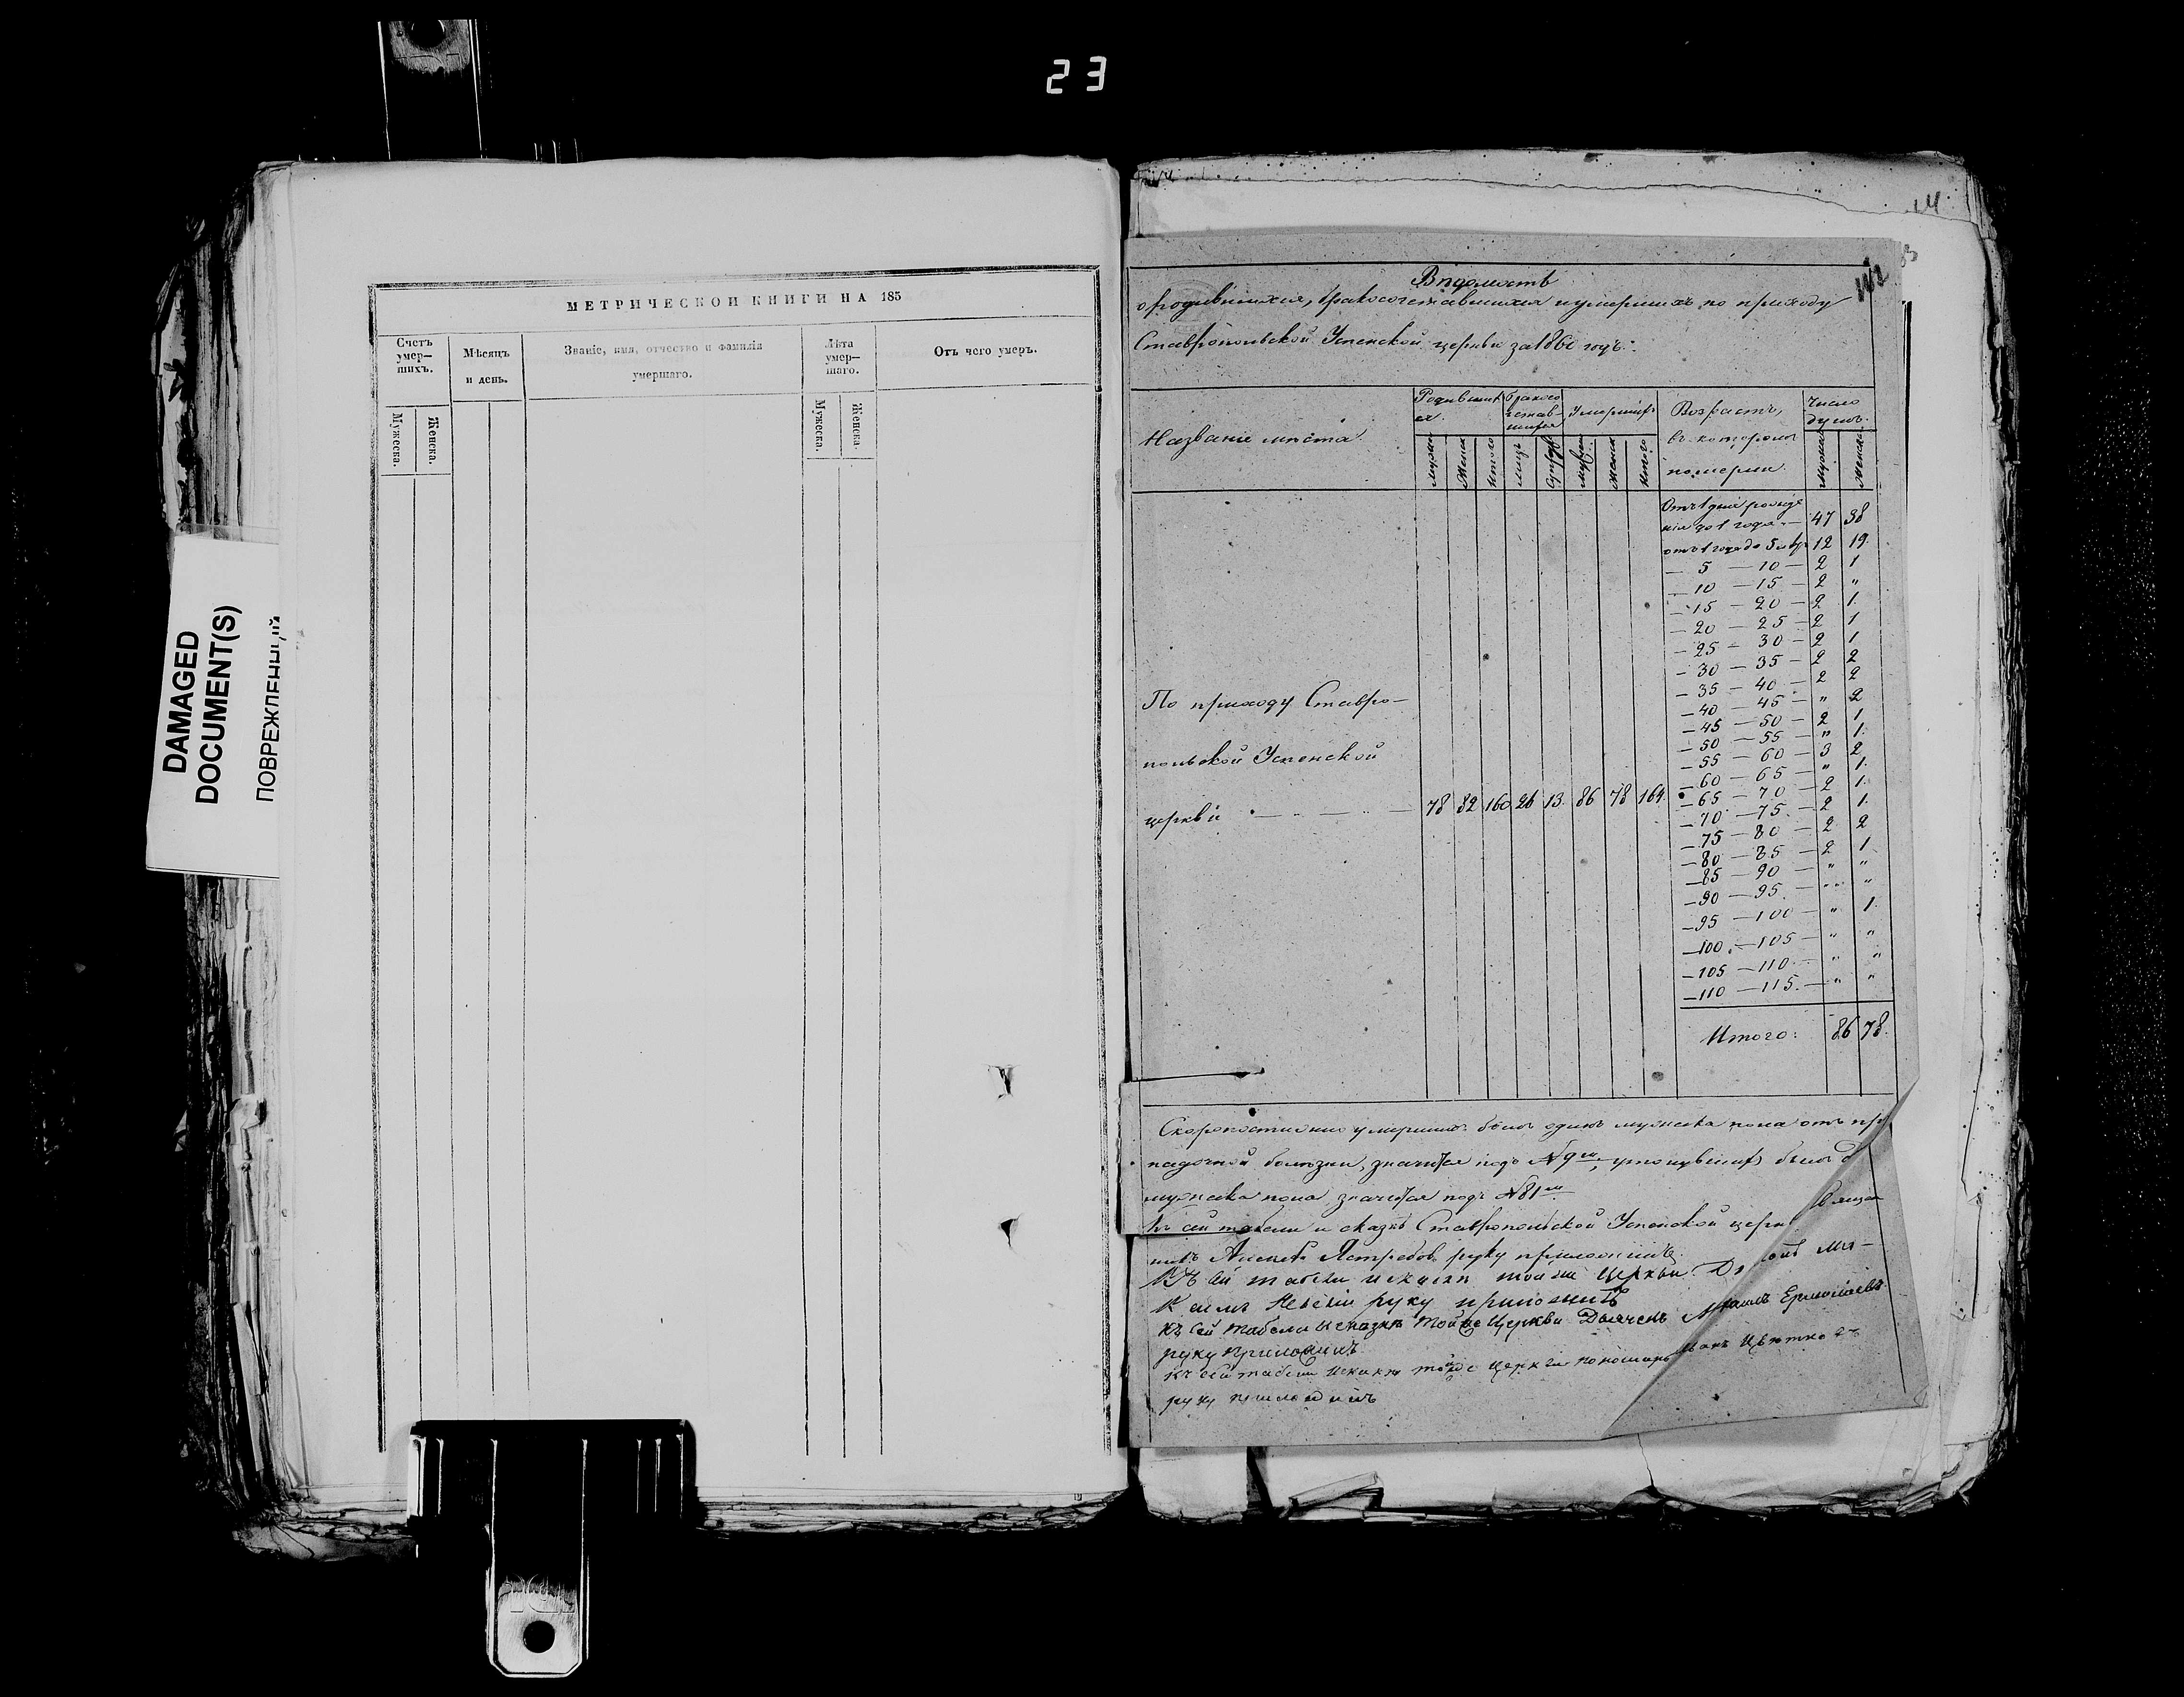 23
DAMAGED
DOCUMENT(S)
МЕТРИЧЕСКОЙ КНИГИ НА 185
Счетъ умер–шихъ.
Мѣсяцъ и день.
Званіе, имя, отчество и фамилія умершаго.
Лѣта умер–шаго.
Отъ чего умеръ.
Мужеска.
Женска.
Мужеска.
Женска.
Вѣдомость
о родившихся, бракосочетавшихся и умершихъ по приходу
Ставропольской Успенской церкви за 1860 годъ.
Названіе мѣста
Родившихся
Бракосочетавшихся
Умершихъ
Возрастъ,
въ которомъ
померли.
Число
душъ.
мужск
Женск
итого
лицъ
мужск
женск
итого
мужск
женск
Отъ 1 дня рожде
нія до 1 года — 47 38
отъ 1 года до 5 12 19.
— 5 — 10 — 2 1
— 10 — 15 — 2 "
— 15 — 20 — 2 1.
— 20 — 25 — 2 1
— 25 — 30 — 2 1
— 30 — 35 — 2 2
— 35 — 40 — 2 2
— 40 — 45 — " 2
— 45 — 50 — 2 1
— 50 — 55 — " 1.
— 55 — 60 — 3 2
— 60 — 65 — " 1.
— 65 — 70 — 2 1.
— 70 — 75 — 2 1.
— 75 — 80 — 2 2
— 80 — 85 — 2 1
— 85 — 90 — " "
— 90 — 95. — " "
— 95 — 100 — " 1.
— 100 — 105 — " "
— 105 — 110 — " "
— 110 — 115. — " "
Итого: 86 78.
По приходу Ставро—
польской Успенской
церкви — 78 82 160 26 13. 86 78 164
Скоропостижно умершихъ былъ одинъ мужеска пола отъ
падочной болѣзни, значится подъ № 9м, утонувшихъ былъ
мужеска пола, значится подъ № 81м
Къ сей табели и сказкѣ Ставропольской Успенской церкви
Ястребовъ руку приложилъ.
Къ сей табели и сказкѣ той же церкви
руку приложилъ
Къ сей табели и сказкѣ той же Церкви Дьячекъ Ермолаевъ
руку приложилъ
Къ сей табели и сказкѣ той же церкви пономарь
руку приложилъ